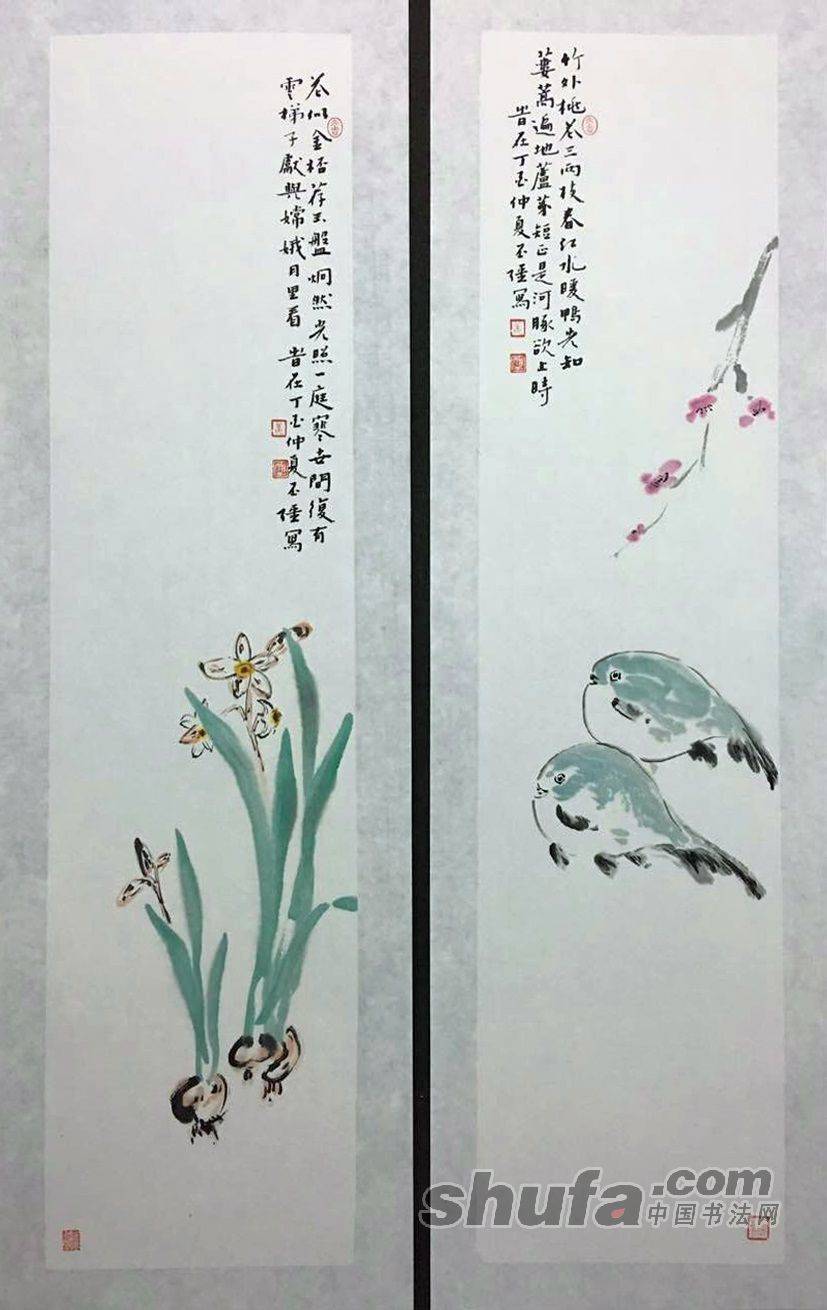 竹外桃花三兩枝春江水暖鴨先知
蔞蒿遍地蘆芽短正是河豚欲上時
旹在丁酉仲夏寫
花似金杯荐玉盤炯然光照一庭寒世間復有
雲梯子獻與嫦娥月里看 旹在丁酉仲夏寫
shufa.com
中国书法网